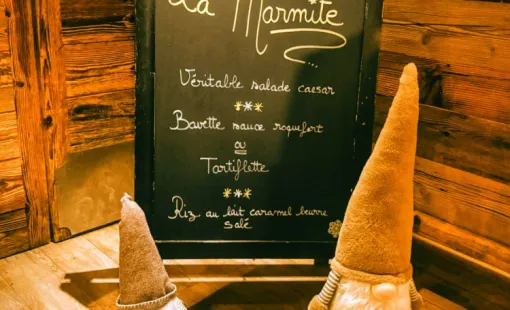 La Marmite
Véritable salade caesar
Bavette sauce roquefort
ou
Tartiflette
Riz au lait caramel beurre
salé